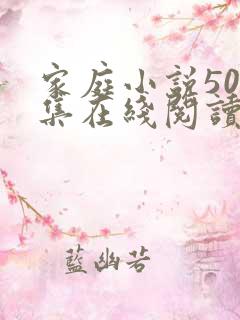 家庭小说50
集在綫閱讀
藍幽若